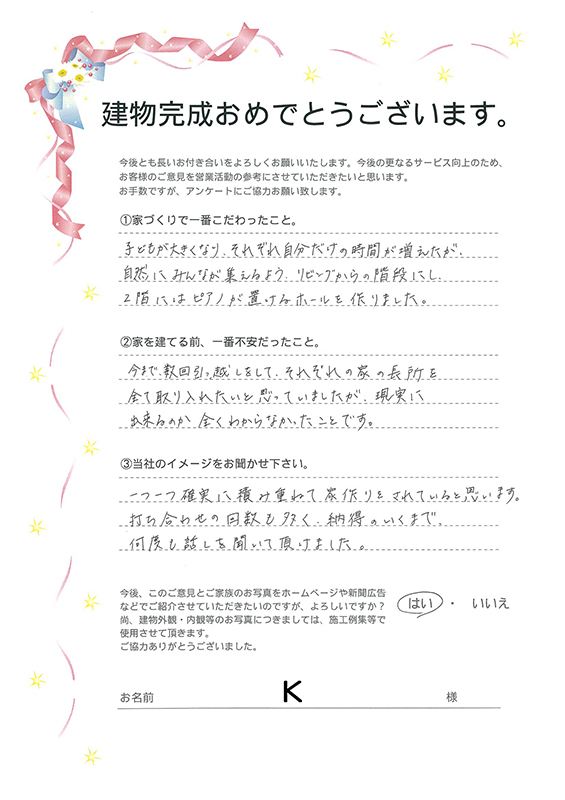 建物完成おめでとうございます。
今後とも長いお付き合いをよろしくお願いいたします。今後の更なるサービス向上のため、
お客様のご意見を営業活動の参考にさせていただきたいと思います。
お手数ですが、アンケートにご協力お願い致します。
①家づくりで一番こだわったこと。
子どもが大きくなり、それぞれ自分だけの時間が増えたが、
自然にみんなが集えるよう、リビングからの階段にし、
2階にはピアノが置けるホールを作りました。
②家を建てる前、一番不安だったこと。
今まで、数回引っ越しをして、それぞれの家の長所を
全て取り入れたいと思っていましたが、現実に
出来るのか全くわからなかったことです。
③当社のイメージをお聞かせ下さい。
一つ一つ確実に積み重ねて家作りをされていると思います。
打ち合わせの回数も多く、納得のいくまで、
何度も話しを聞いて頂けました。
今後、このご意見とご家族のお写真をホームページや新聞広告
などでご紹介させていただきたいのですが、よろしいですか？
はい ・ いいえ
尚、建物外観・内観等のお写真につきましては、施工例集等で
使用させて頂きます。
ご協力ありがとうございました。
お名前 K 様